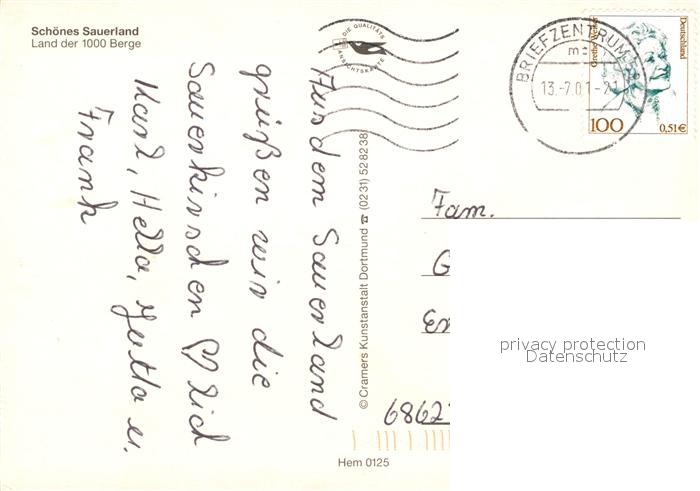 Schönes Sauerland
Land der 1000 Berge
DIE QUALITÄTS
ANSICHTSKARTE
Aus dem Sauerland
grüßen wir die
Sauerkirschen ♡ lich
Karl, Hella, Jutta u.
Frank
© Cramers Kunstanstalt Dortmund ☎ (0231) 528238
Hem 0125
BRIEFZENTRUM
13.-7.01-21
Deutschland
100
0,51€
Fam.
G
68623
privacy protection
Datenschutz